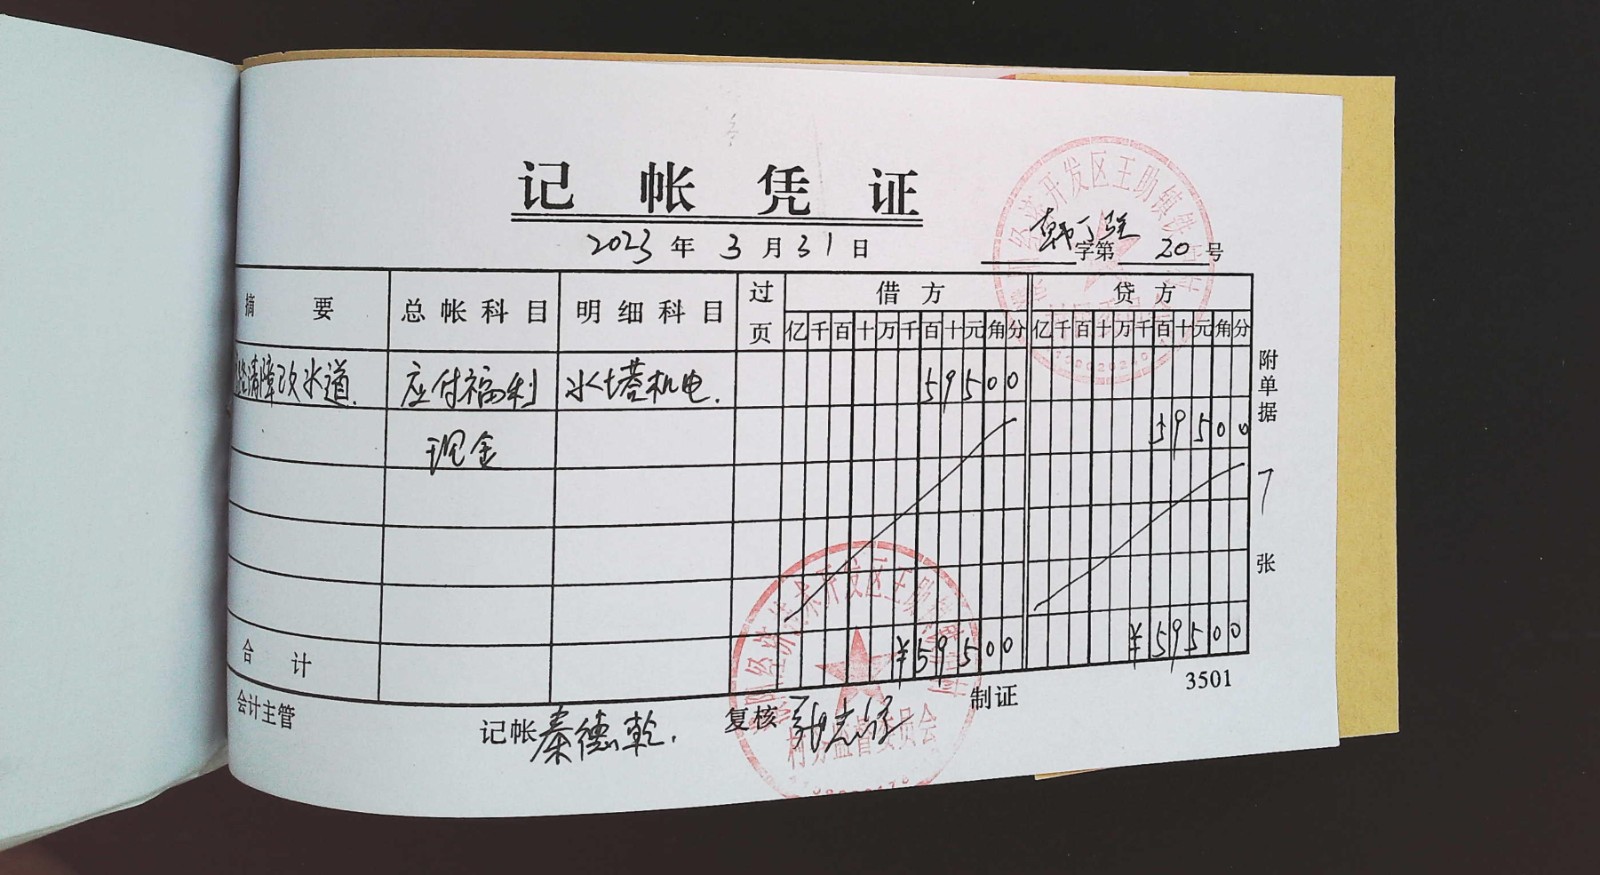 记帐凭证
2023年3月31日
字第20号
摘要 总帐科目 明细科目 过页 借方 贷方
亿千百十万千百十元角分 亿千百十万千百十元角分
清障改水道. 应付福利 水塔机电. 59500
现金 59500
合计 ¥59500 ¥59500
附单据 7 张
3501
会计主管 记帐 秦德乾. 复核 制证
经济开发区王助镇
经济技术开发区王助镇
村务监督委员会